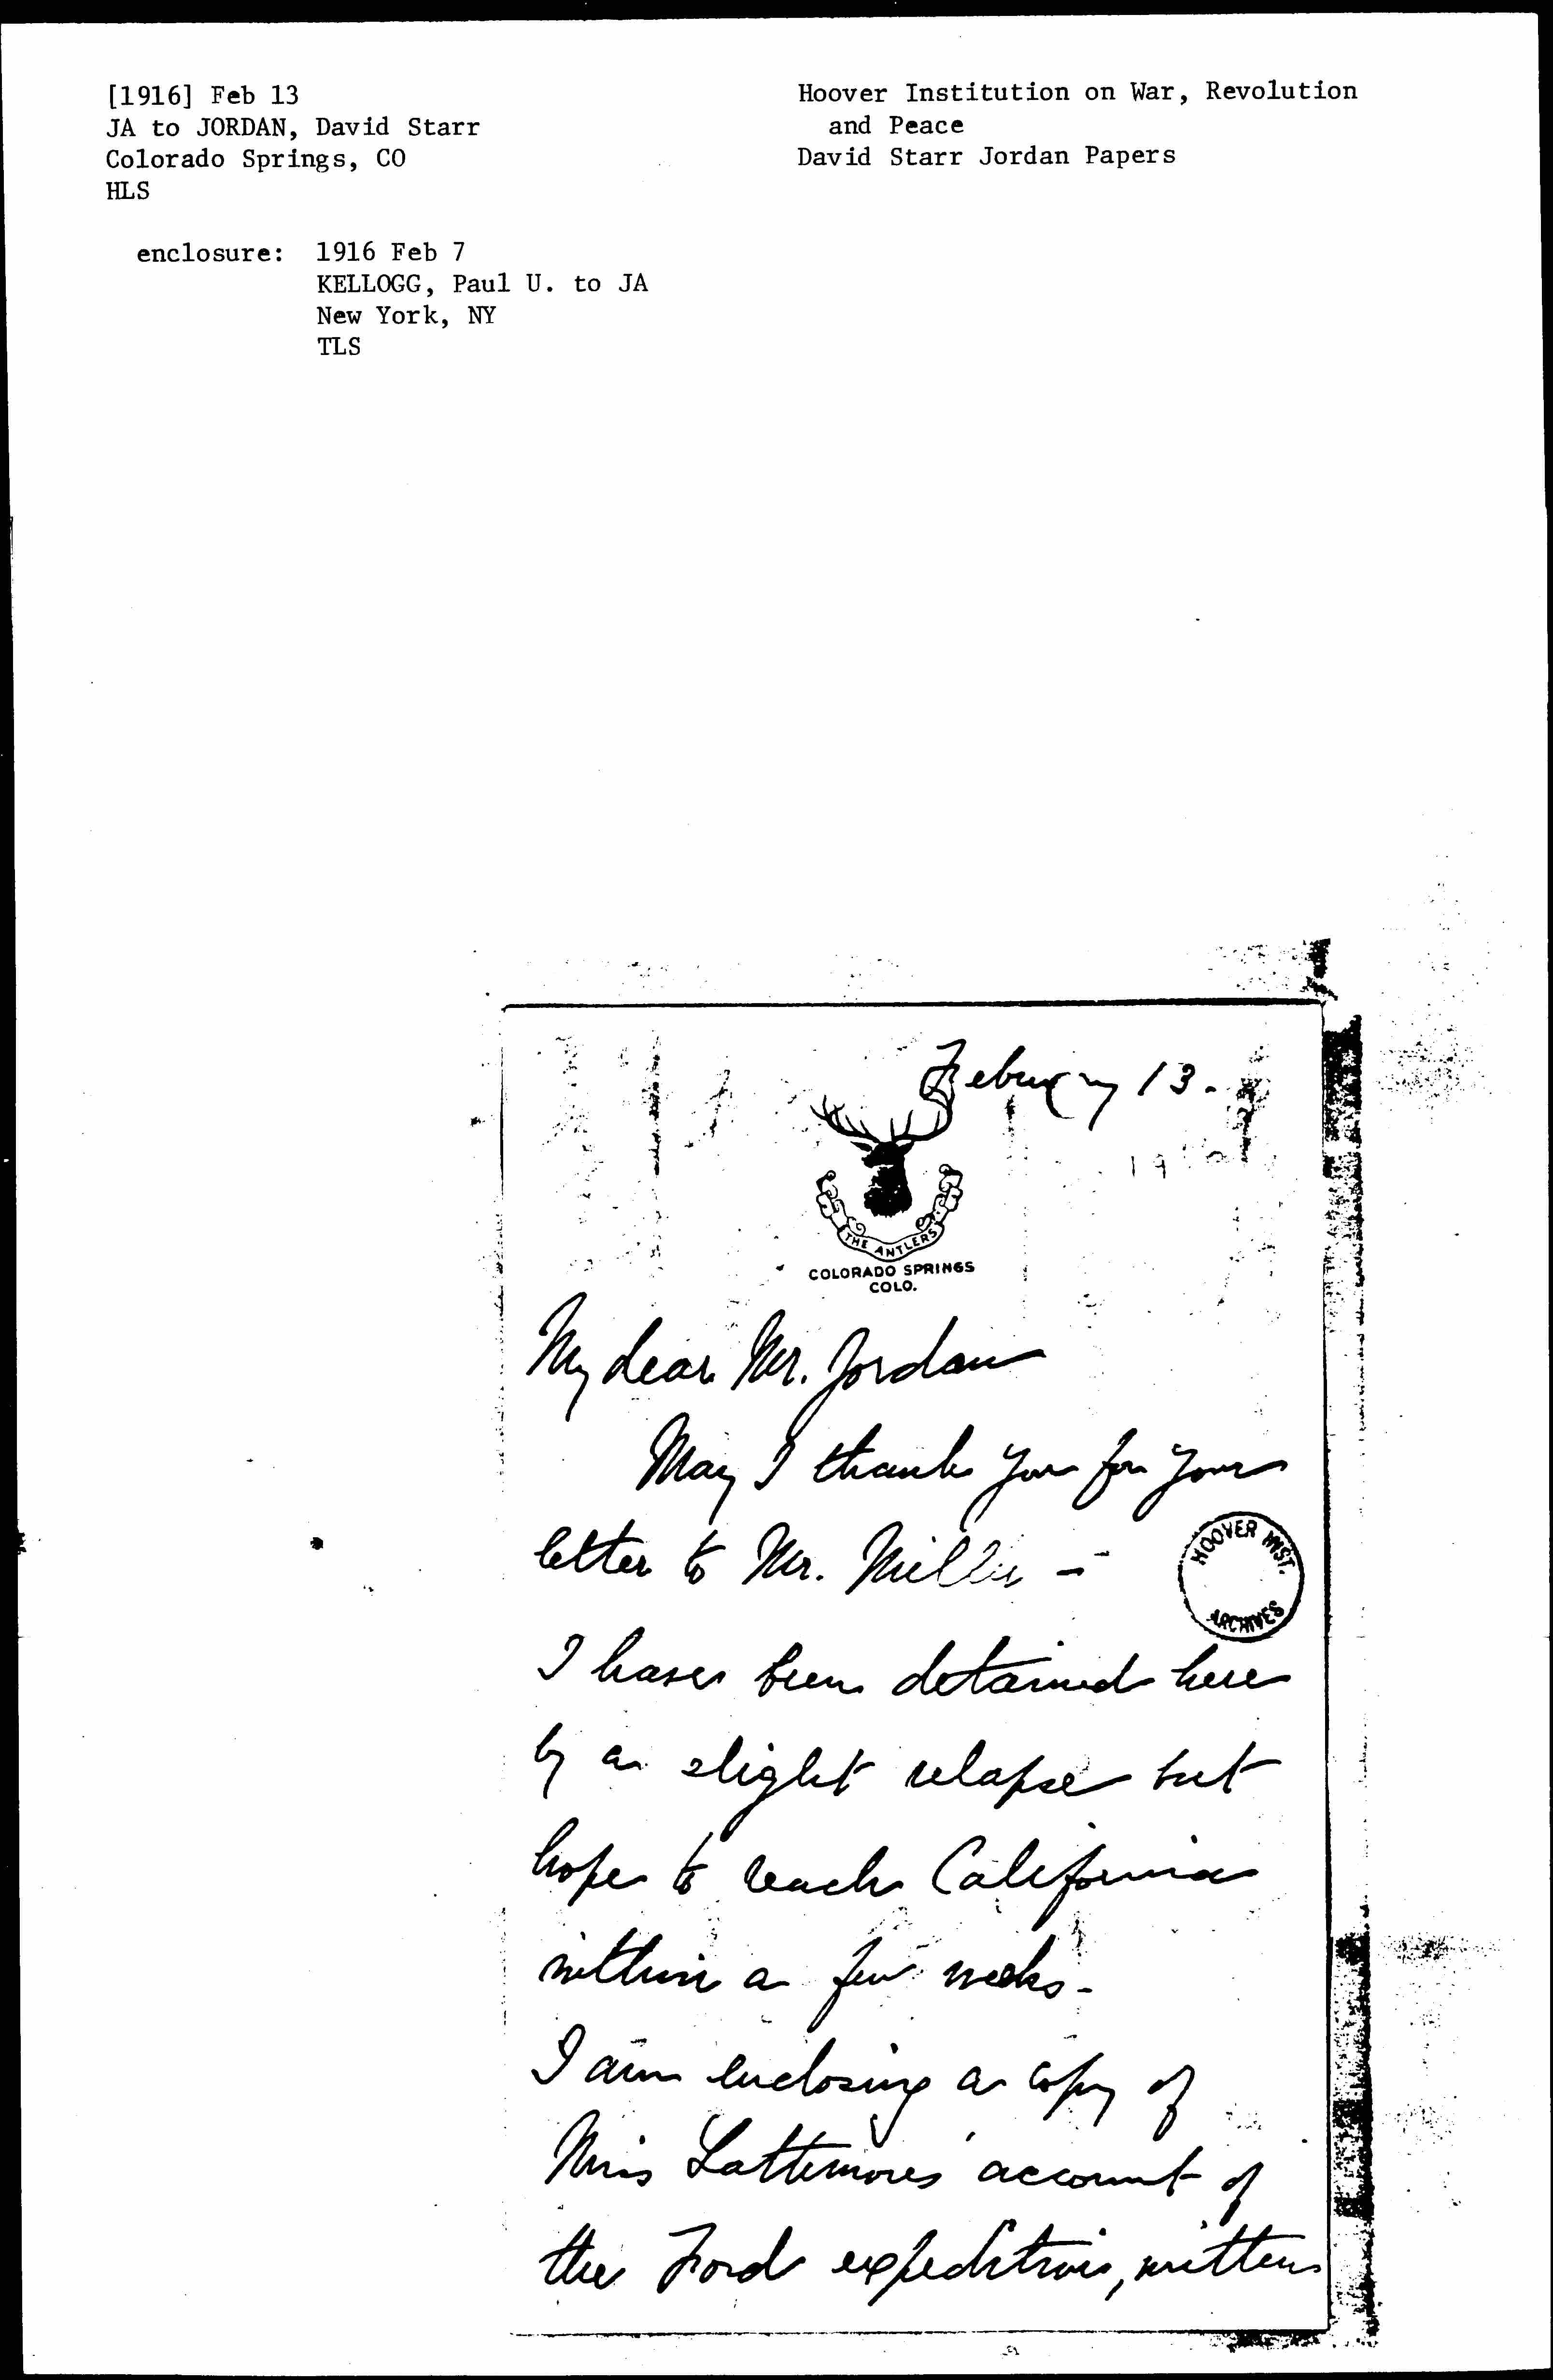 [1916] Feb 13
JA to JORDAN, David Starr
Colorado Springs, CO
HLS
enclosure: 1916 Feb 7
KELLOGG, Paul U. to JA
New York, NY
TLS
Hoover Institution on War, Revolution
and Peace
David Starr Jordan Papers
February 13.
THE ANTLERS
COLORADO SPRINGS
COLO.
My dear Mr. Jordan
May I thank you for your
letter to Mr. Miller -
HOOVER INST.
ARCHIVES
I have been detained here
by a slight relapse but
hope to reach California
within a few weeks -
I am enclosing a copy of
Miss Lattimore's account of
the Ford expedition, written